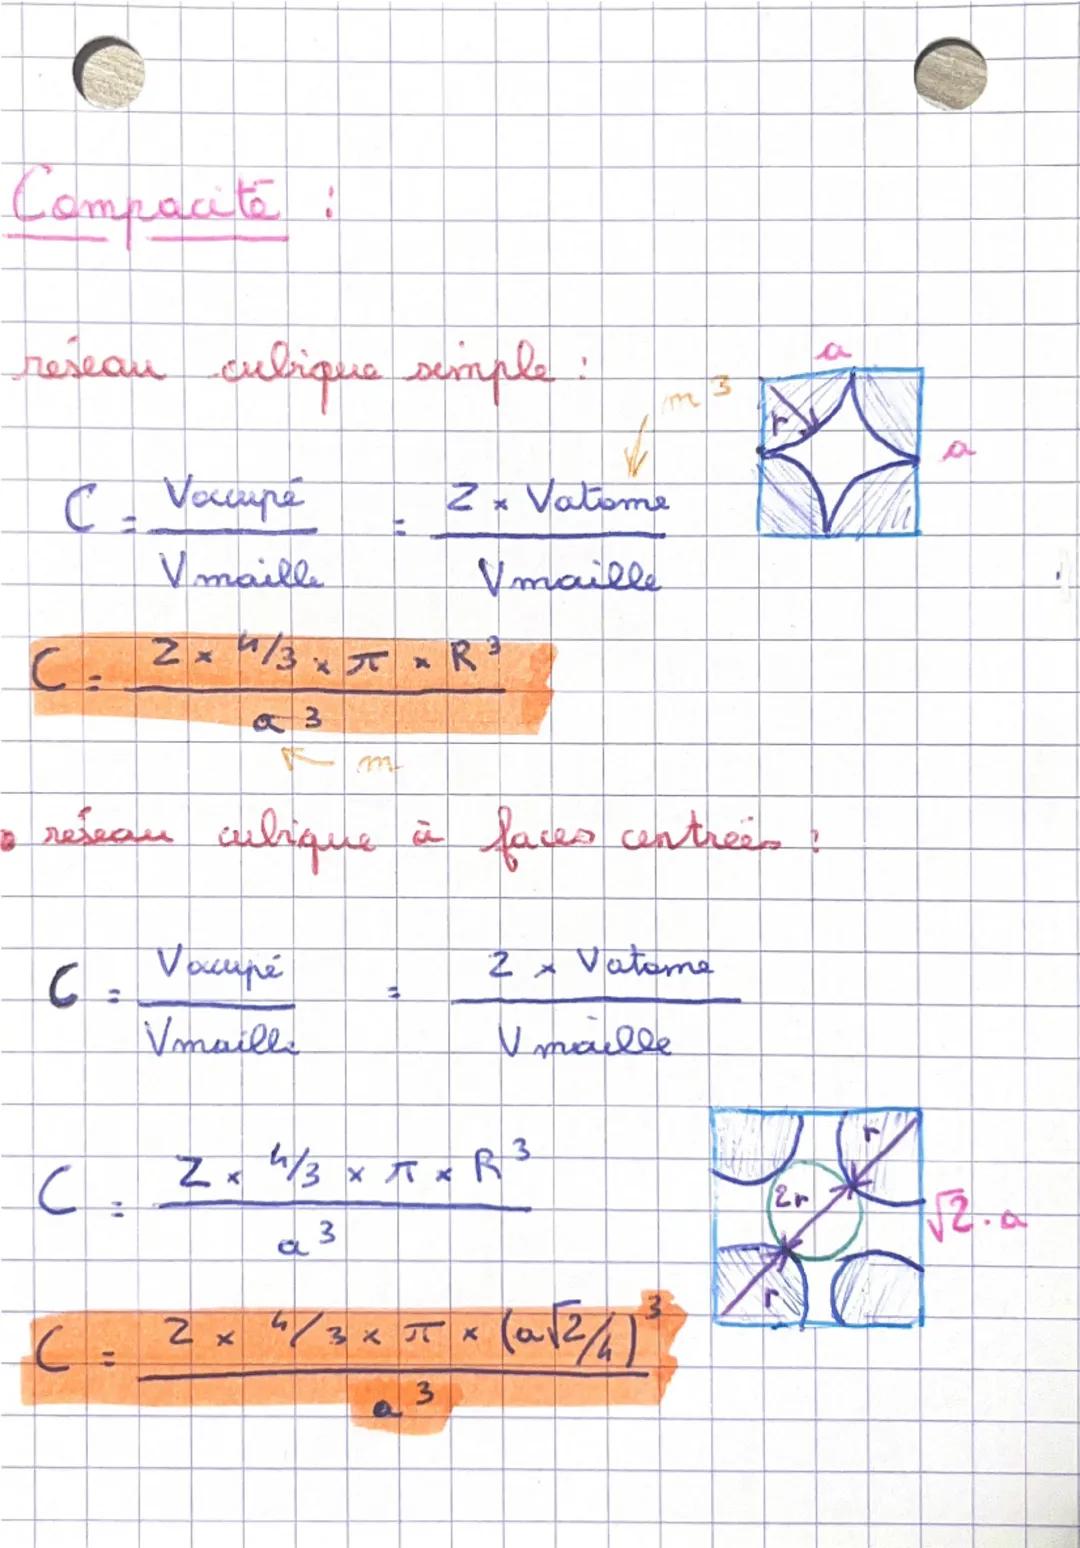 Compacité :
réseau cubique simple :
a
m³
r
a
C = Voccupé / Vmaille = Z × Vatome / Vmaille
C = Z × 4/3 × π × R³ / a³
m
• réseau cubique à faces centrées :
C = Voccupé / Vmaille = Z × Vatome / Vmaille
C = Z × 4/3 × π × R³ / a³
r
2r
√2 · a
r
C = Z × 4/3 × π × (a√2/4)³ / a³